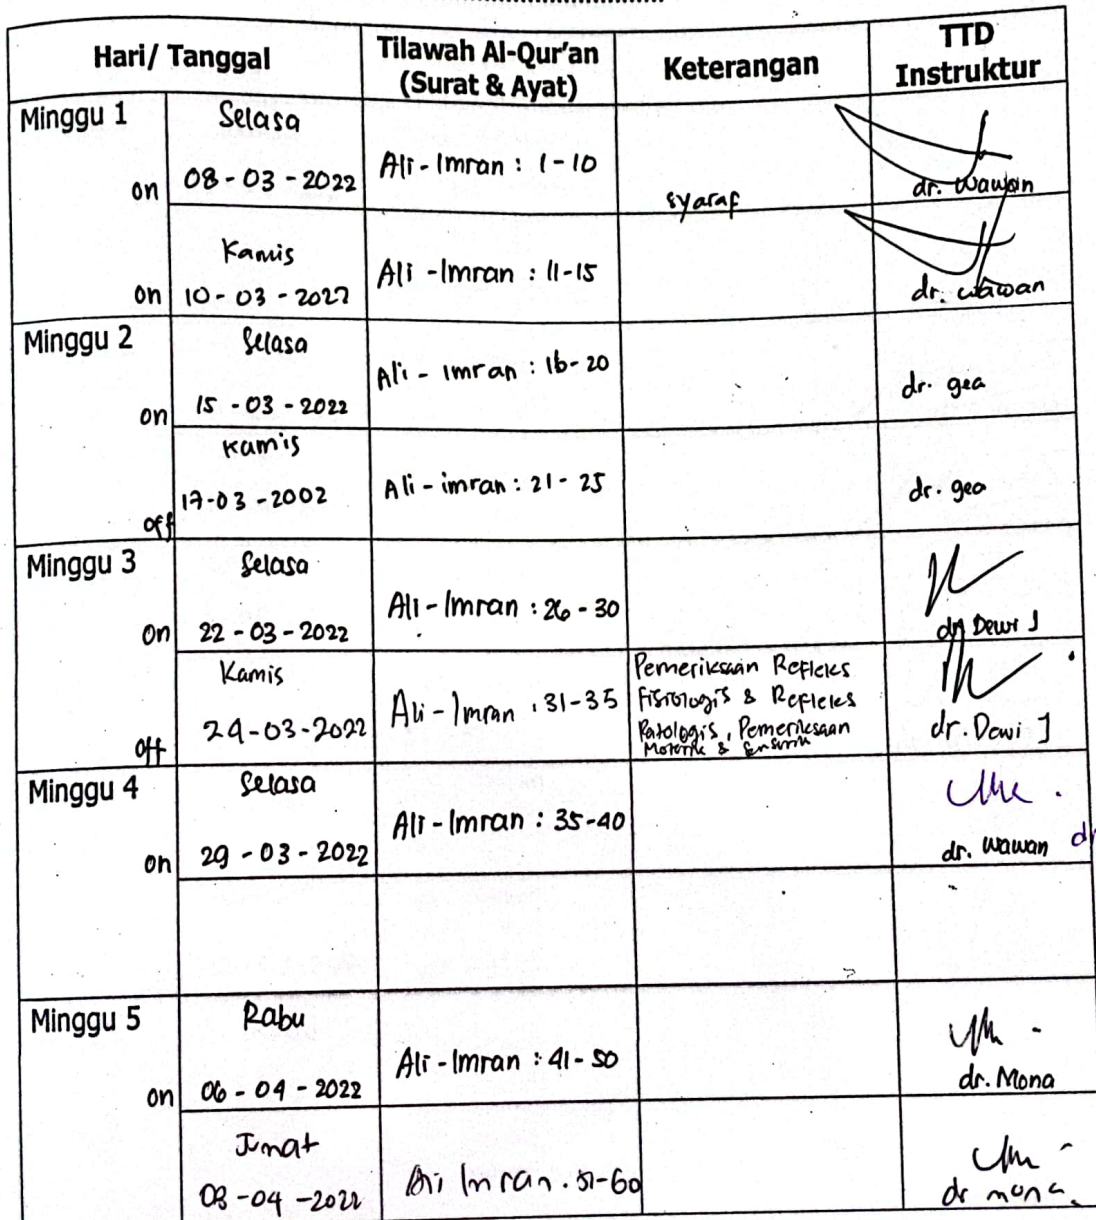 Hari/ Tanggal
Tilawah Al-Qur'an
(Surat & Ayat)
Keterangan
TTD
Instruktur
Minggu 1
on
Selasa
08-03-2022
Ali-Imran : 1-10
syaraf
dr. Wawan
on
Kamis
10-03-2022
Ali-Imran : 11-15
dr. wawan
Minggu 2
on
Selasa
15-03-2022
Ali-Imran : 16-20
dr. gea
off
Kamis
17-03-2002
Ali-imran : 21-25
dr. gea
Minggu 3
on
Selasa
22-03-2022
Ali-Imran : 26-30
dr Dewi J
off
Kamis
24-03-2022
Ali-Imran : 31-35
Pemeriksaan Refleks
Fisiologis & Refleks
Patologis, Pemeriksaan
Motorik & Sensorik
dr. Dewi J
Minggu 4
on
Selasa
29-03-2022
Ali-Imran : 35-40
dr. wawan
Minggu 5
on
Rabu
06-04-2022
Ali-Imran : 41-50
dr. Mona
Jumat
08-04-2022
Ali Imran . 51-60
dr mona